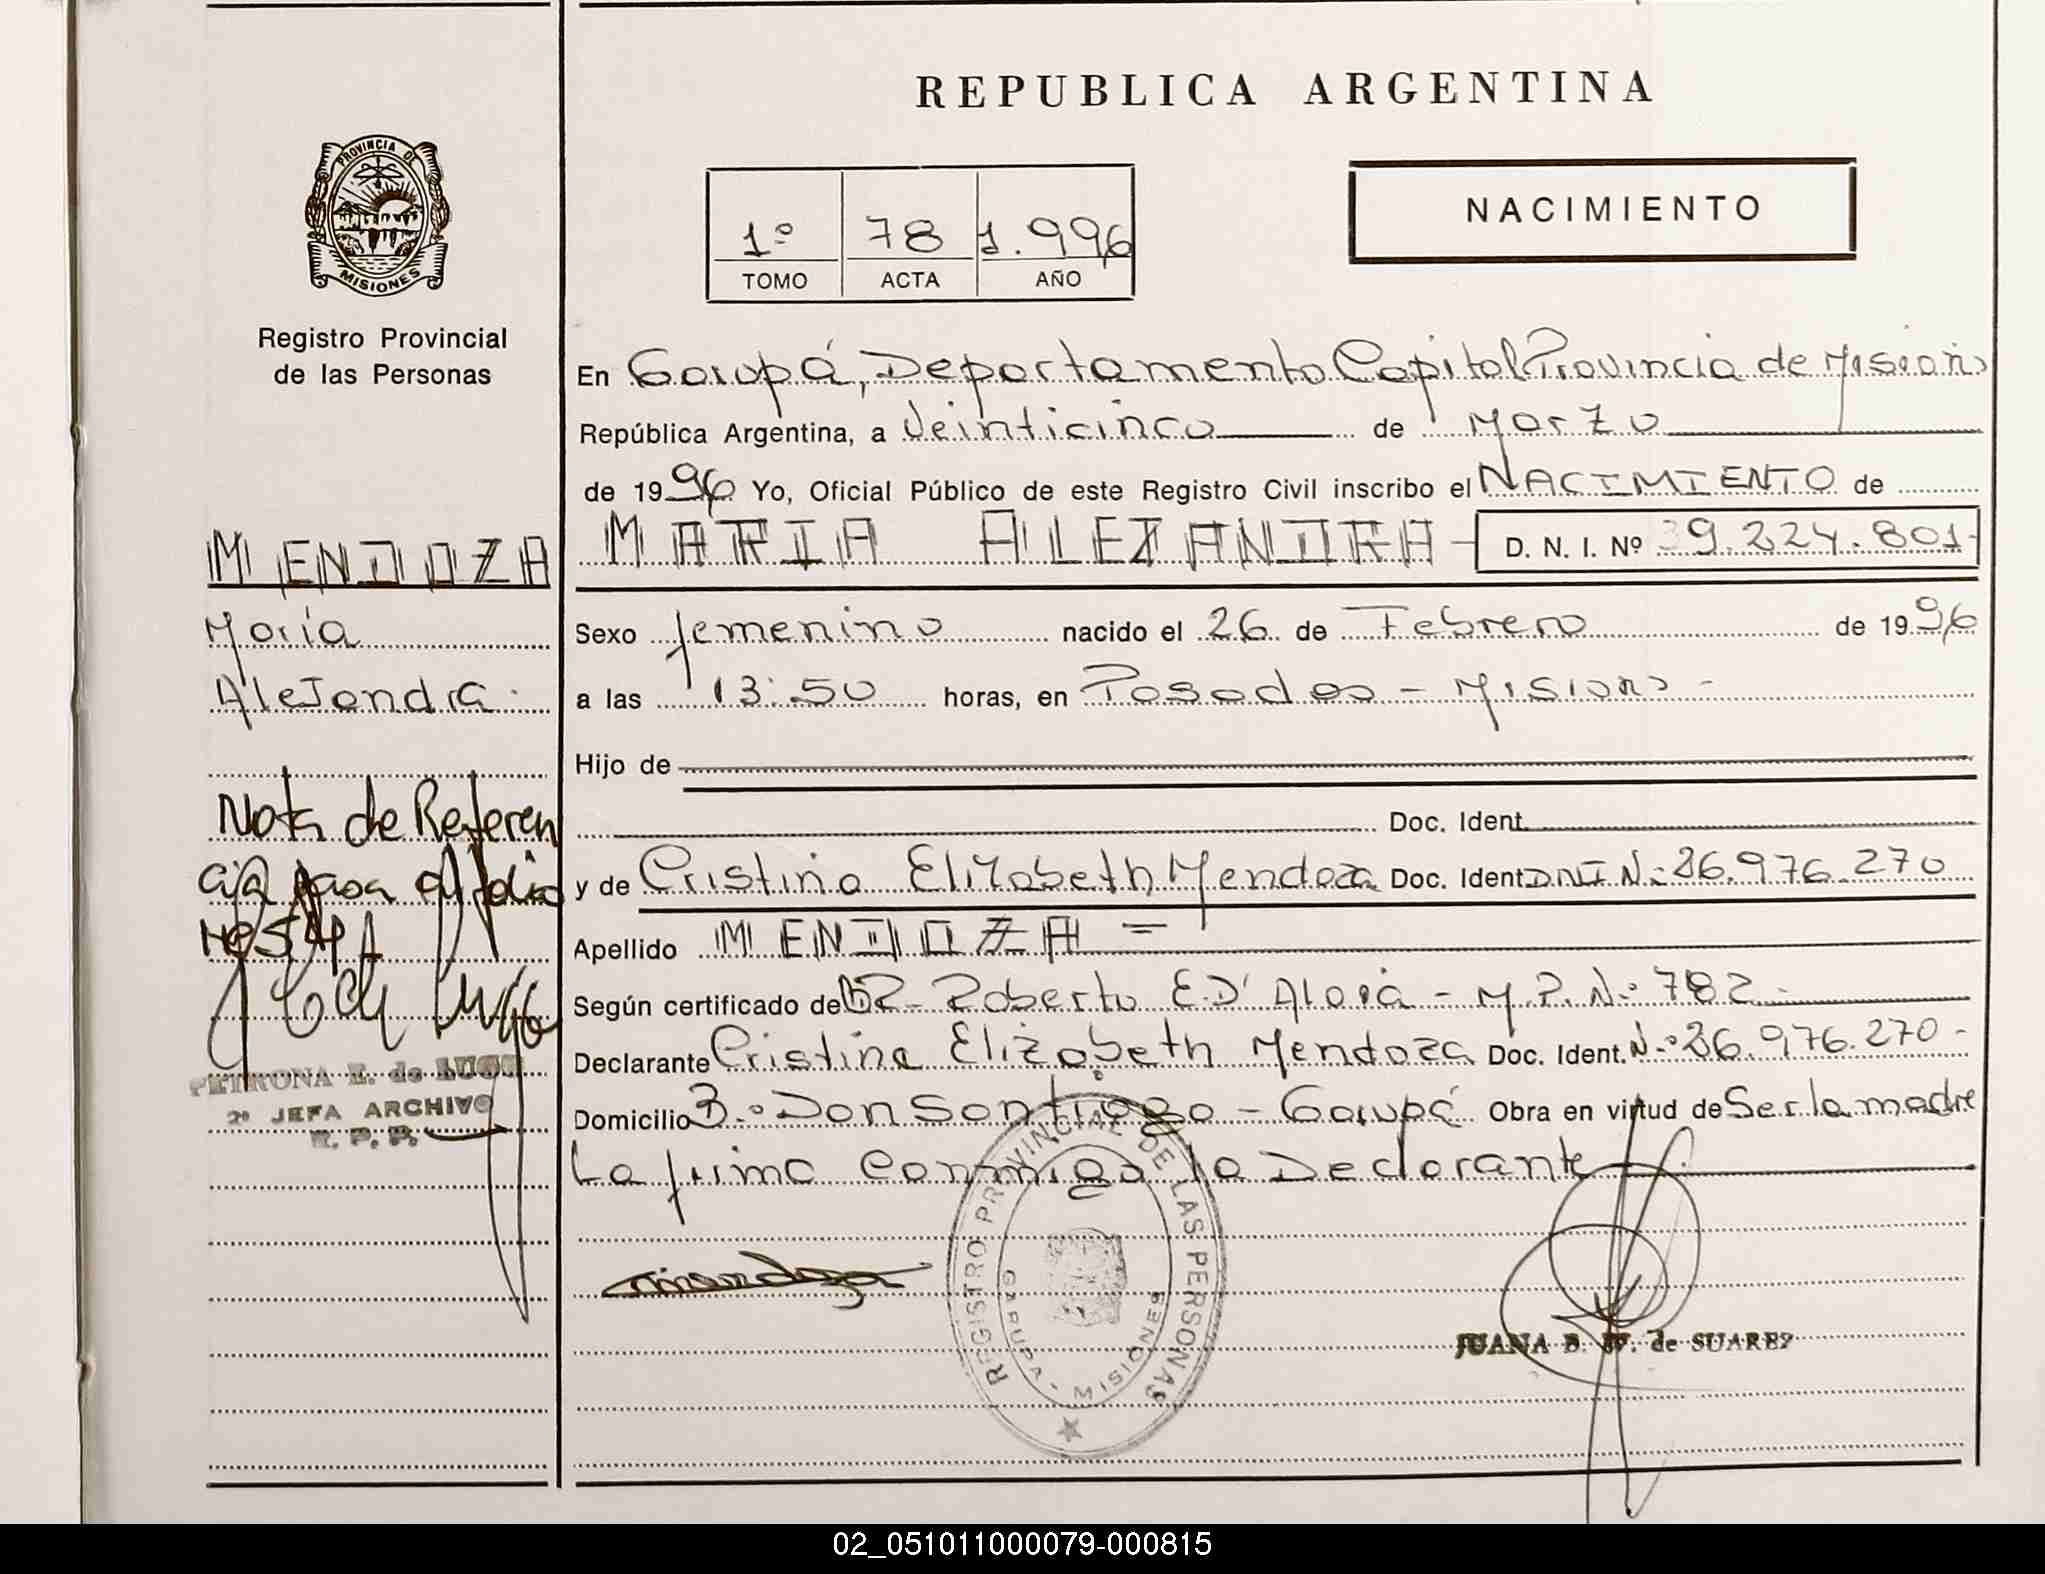 REPUBLICA ARGENTINA
PROVINCIA DE
MISIONES
Registro Provincial
de las Personas
1º 78 1.996
TOMO ACTA AÑO
NACIMIENTO
En Garupá, Departamento Capital Provincia de Misiones
República Argentina, a Veinticinco de Marzo
de 1996 Yo, Oficial Público de este Registro Civil inscribo el NACIMIENTO de
MARIA ALEJANDRA D. N. I. Nº 39.224.801-
MENDOZA
María
Alejandra.
Sexo femenino nacido el 26 de Febrero de 1996
a las 13:50 horas, en Posadas - Misiones -
Hijo de
Doc. Ident.
y de Cristina Elizabeth Mendoza Doc. Ident. DNI N: 26.976.270
Apellido MENDOZA =
Según certificado de DR. Roberto E. D' - M.P. Nº 782-
Declarante Cristina Elizabeth Mendoza Doc. Ident. Nº 26.976.270-
Domicilio Bº Don Santiago - Garupá Obra en virtud de Ser la madre
La firma conmigo la Declarante
Nota de Referen
cia para el folio
Nº
PETRONA E. de LUGO
2º JEFA ARCHIVO
R. P. P.
mendoza
REGISTRO PROVINCIAL DE LAS PERSONAS
GARUPA - MISIONES
JUANA B. de SUAREZ
02_051011000079-000815